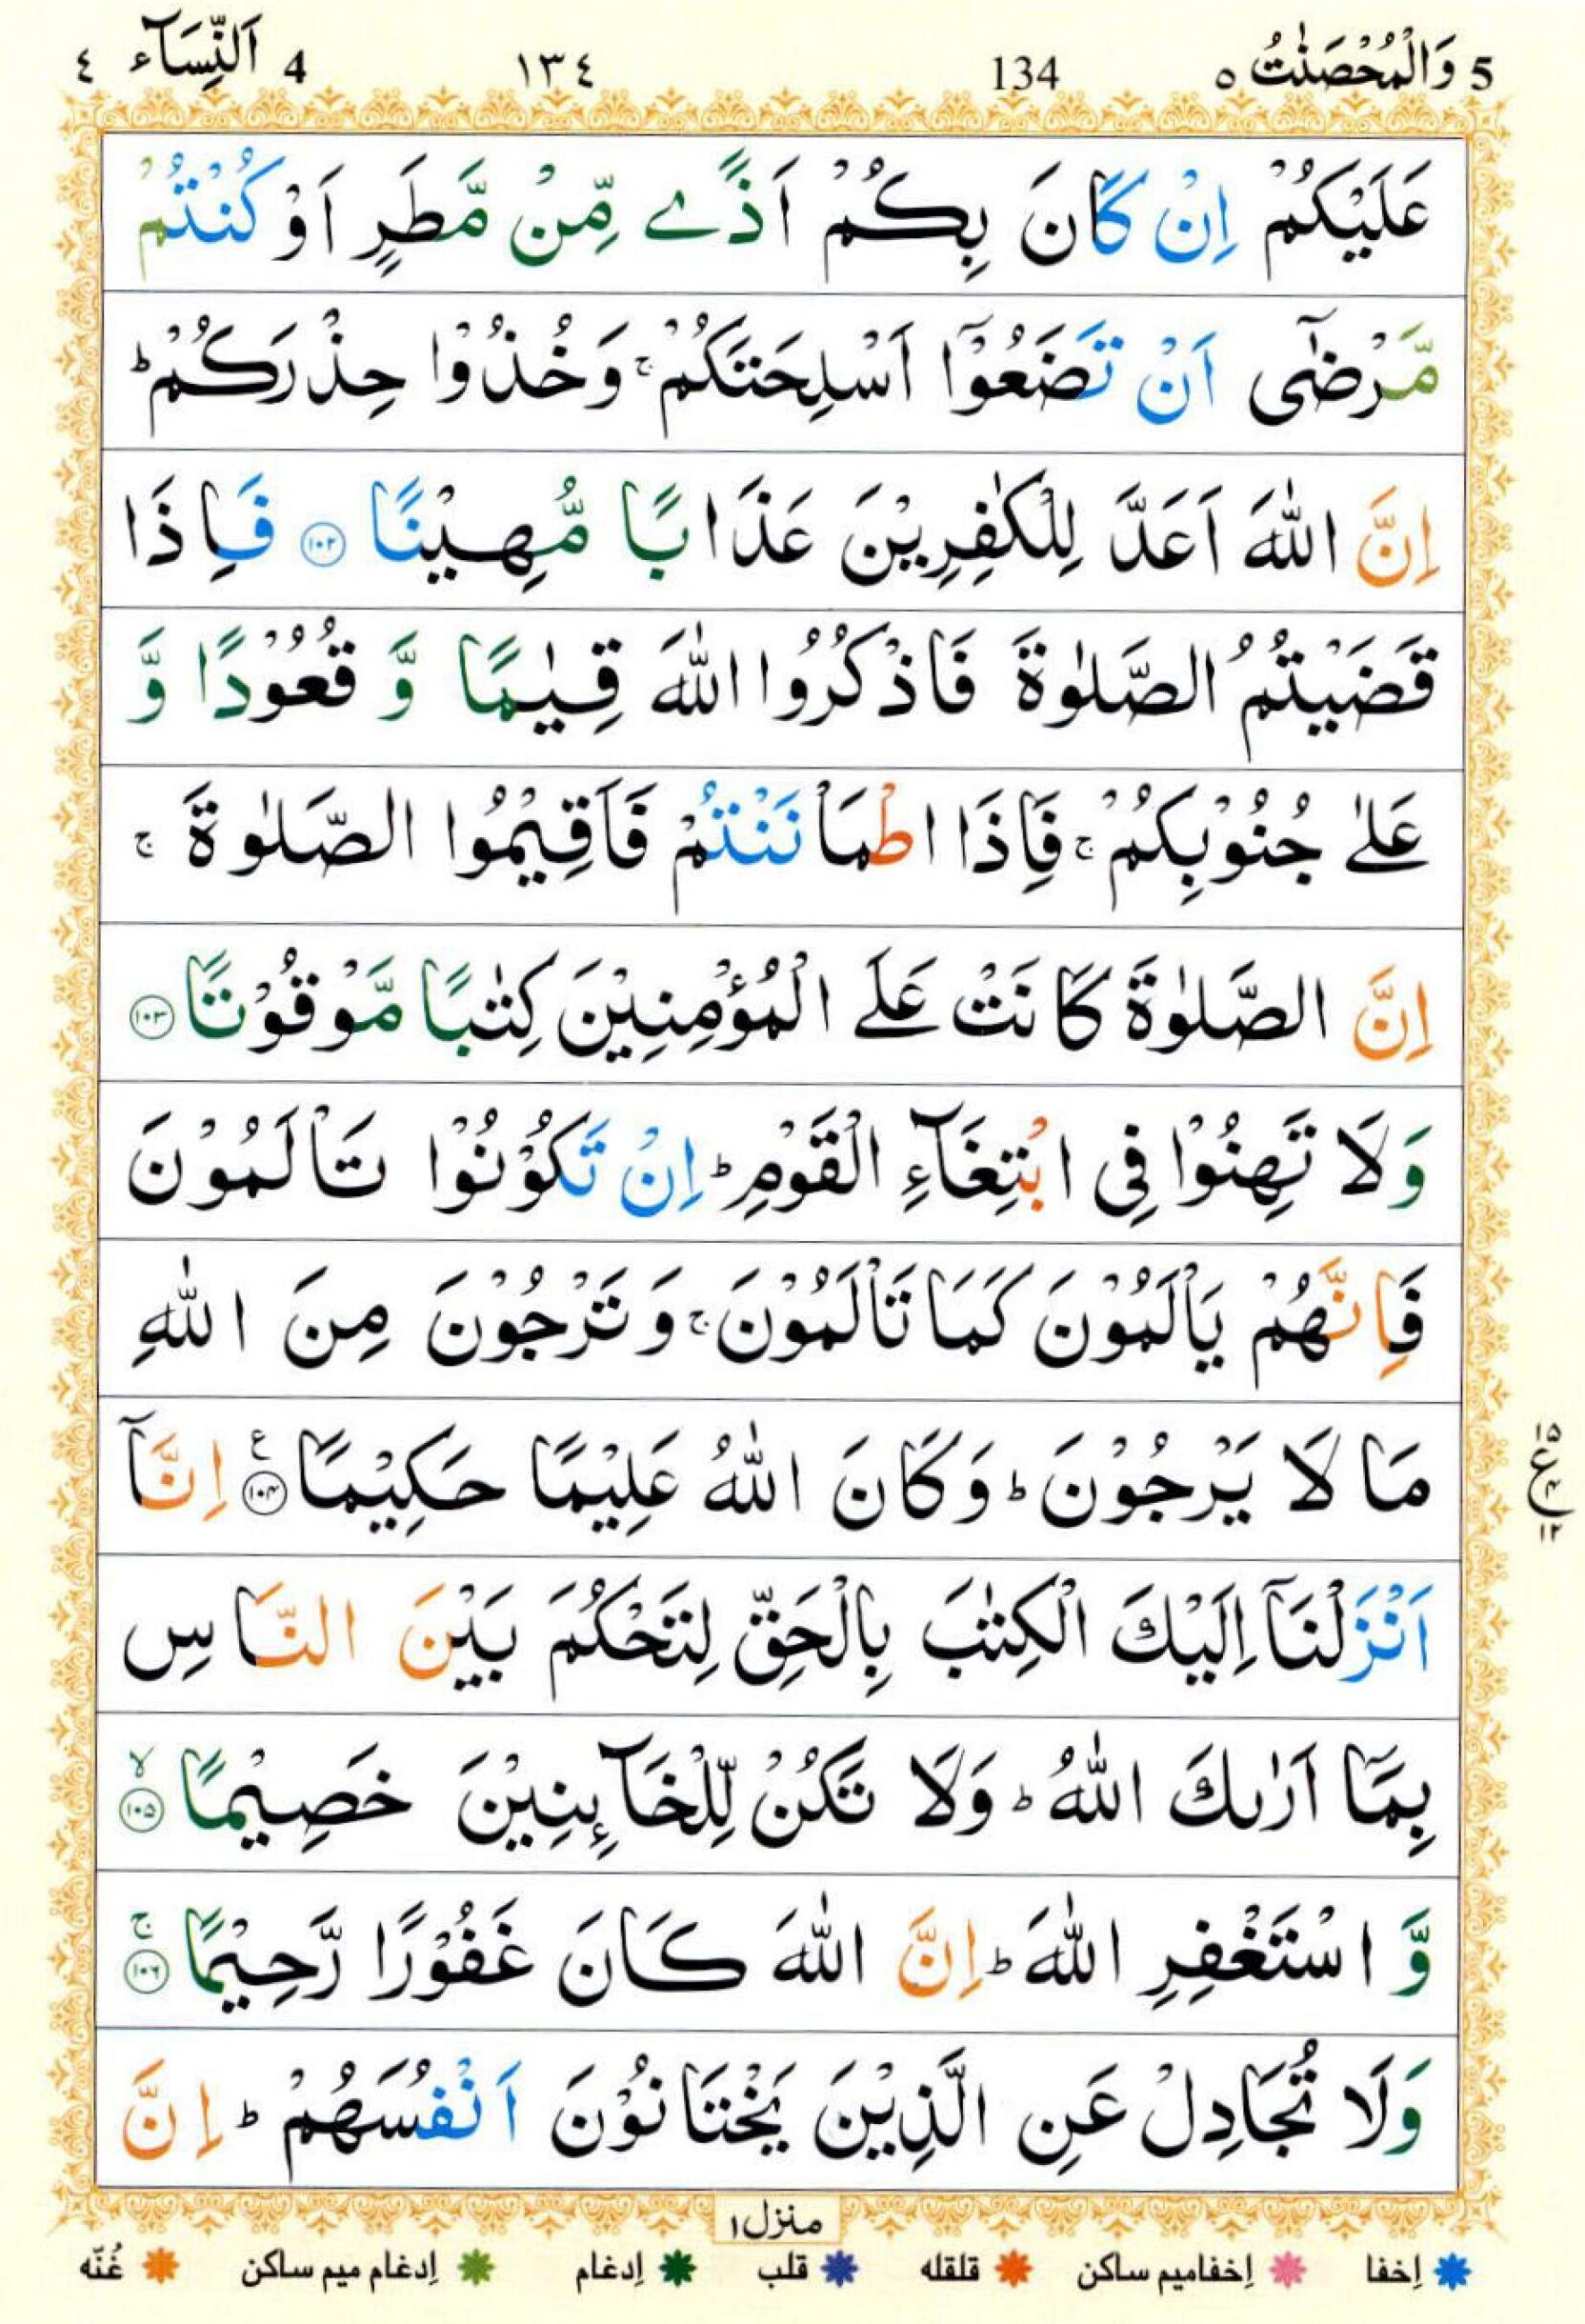 5 وَالْمُحْصَنٰتُ ٥ 134 ١٣٤ 4 اَلنِّسَآء ٤
عَلَيْكُمْ اِنْ كَانَ بِكُمْ اَذًے مِّنْ مَّطَرٍ اَوْ كُنْتُمْ
مَّرْضٰٓى اَنْ تَضَعُوْٓا اَسْلِحَتَكُمْ ۚ وَخُذُوْا حِذْرَكُمْ ؕ
اِنَّ اللّٰهَ اَعَدَّ لِلْكٰفِرِيْنَ عَذَابًا مُّهِيْنًا ۝١٠٢ فَاِذَا
قَضَيْتُمُ الصَّلٰوةَ فَاذْكُرُوا اللّٰهَ قِيٰمًا وَّ قُعُوْدًا وَّ
عَلٰے جُنُوْبِكُمْ ۚ فَاِذَا اطْمَاْنَنْتُمْ فَاَقِيْمُوا الصَّلٰوةَ ۚ
اِنَّ الصَّلٰوةَ كَانَتْ عَلَے الْمُؤْمِنِيْنَ كِتٰبًا مَّوْقُوْتًا ۝١٠٣
وَلَا تَهِنُوْا فِى ابْتِغَآءِ الْقَوْمِ ؕ اِنْ تَكُوْنُوْا تَاْلَمُوْنَ
فَاِنَّهُمْ يَاْلَمُوْنَ كَمَا تَاْلَمُوْنَ ۚ وَتَرْجُوْنَ مِنَ اللّٰهِ
مَا لَا يَرْجُوْنَ ؕ وَكَانَ اللّٰهُ عَلِيْمًا حَكِيْمًا ۝١٠٤ ع اِنَّآ
١٥ ع ٤ ١٢
اَنْزَلْنَآ اِلَيْكَ الْكِتٰبَ بِالْحَقِّ لِتَحْكُمَ بَيْنَ النَّاسِ
بِمَآ اَرٰىكَ اللّٰهُ ؕ وَلَا تَكُنْ لِّلْخَآئِنِيْنَ خَصِيْمًا ۝١٠٥ ۙ
وَّ اسْتَغْفِرِ اللّٰهَ ؕ اِنَّ اللّٰهَ كَانَ غَفُوْرًا رَّحِيْمًا ۝١٠٦ ۚ
وَلَا تُجَادِلْ عَنِ الَّذِيْنَ يَخْتَانُوْنَ اَنْفُسَهُمْ ؕ اِنَّ
منزل١
إخفا إخفاميم ساكن قلقله قلب إدغام إدغام ميم ساكن غُنّه